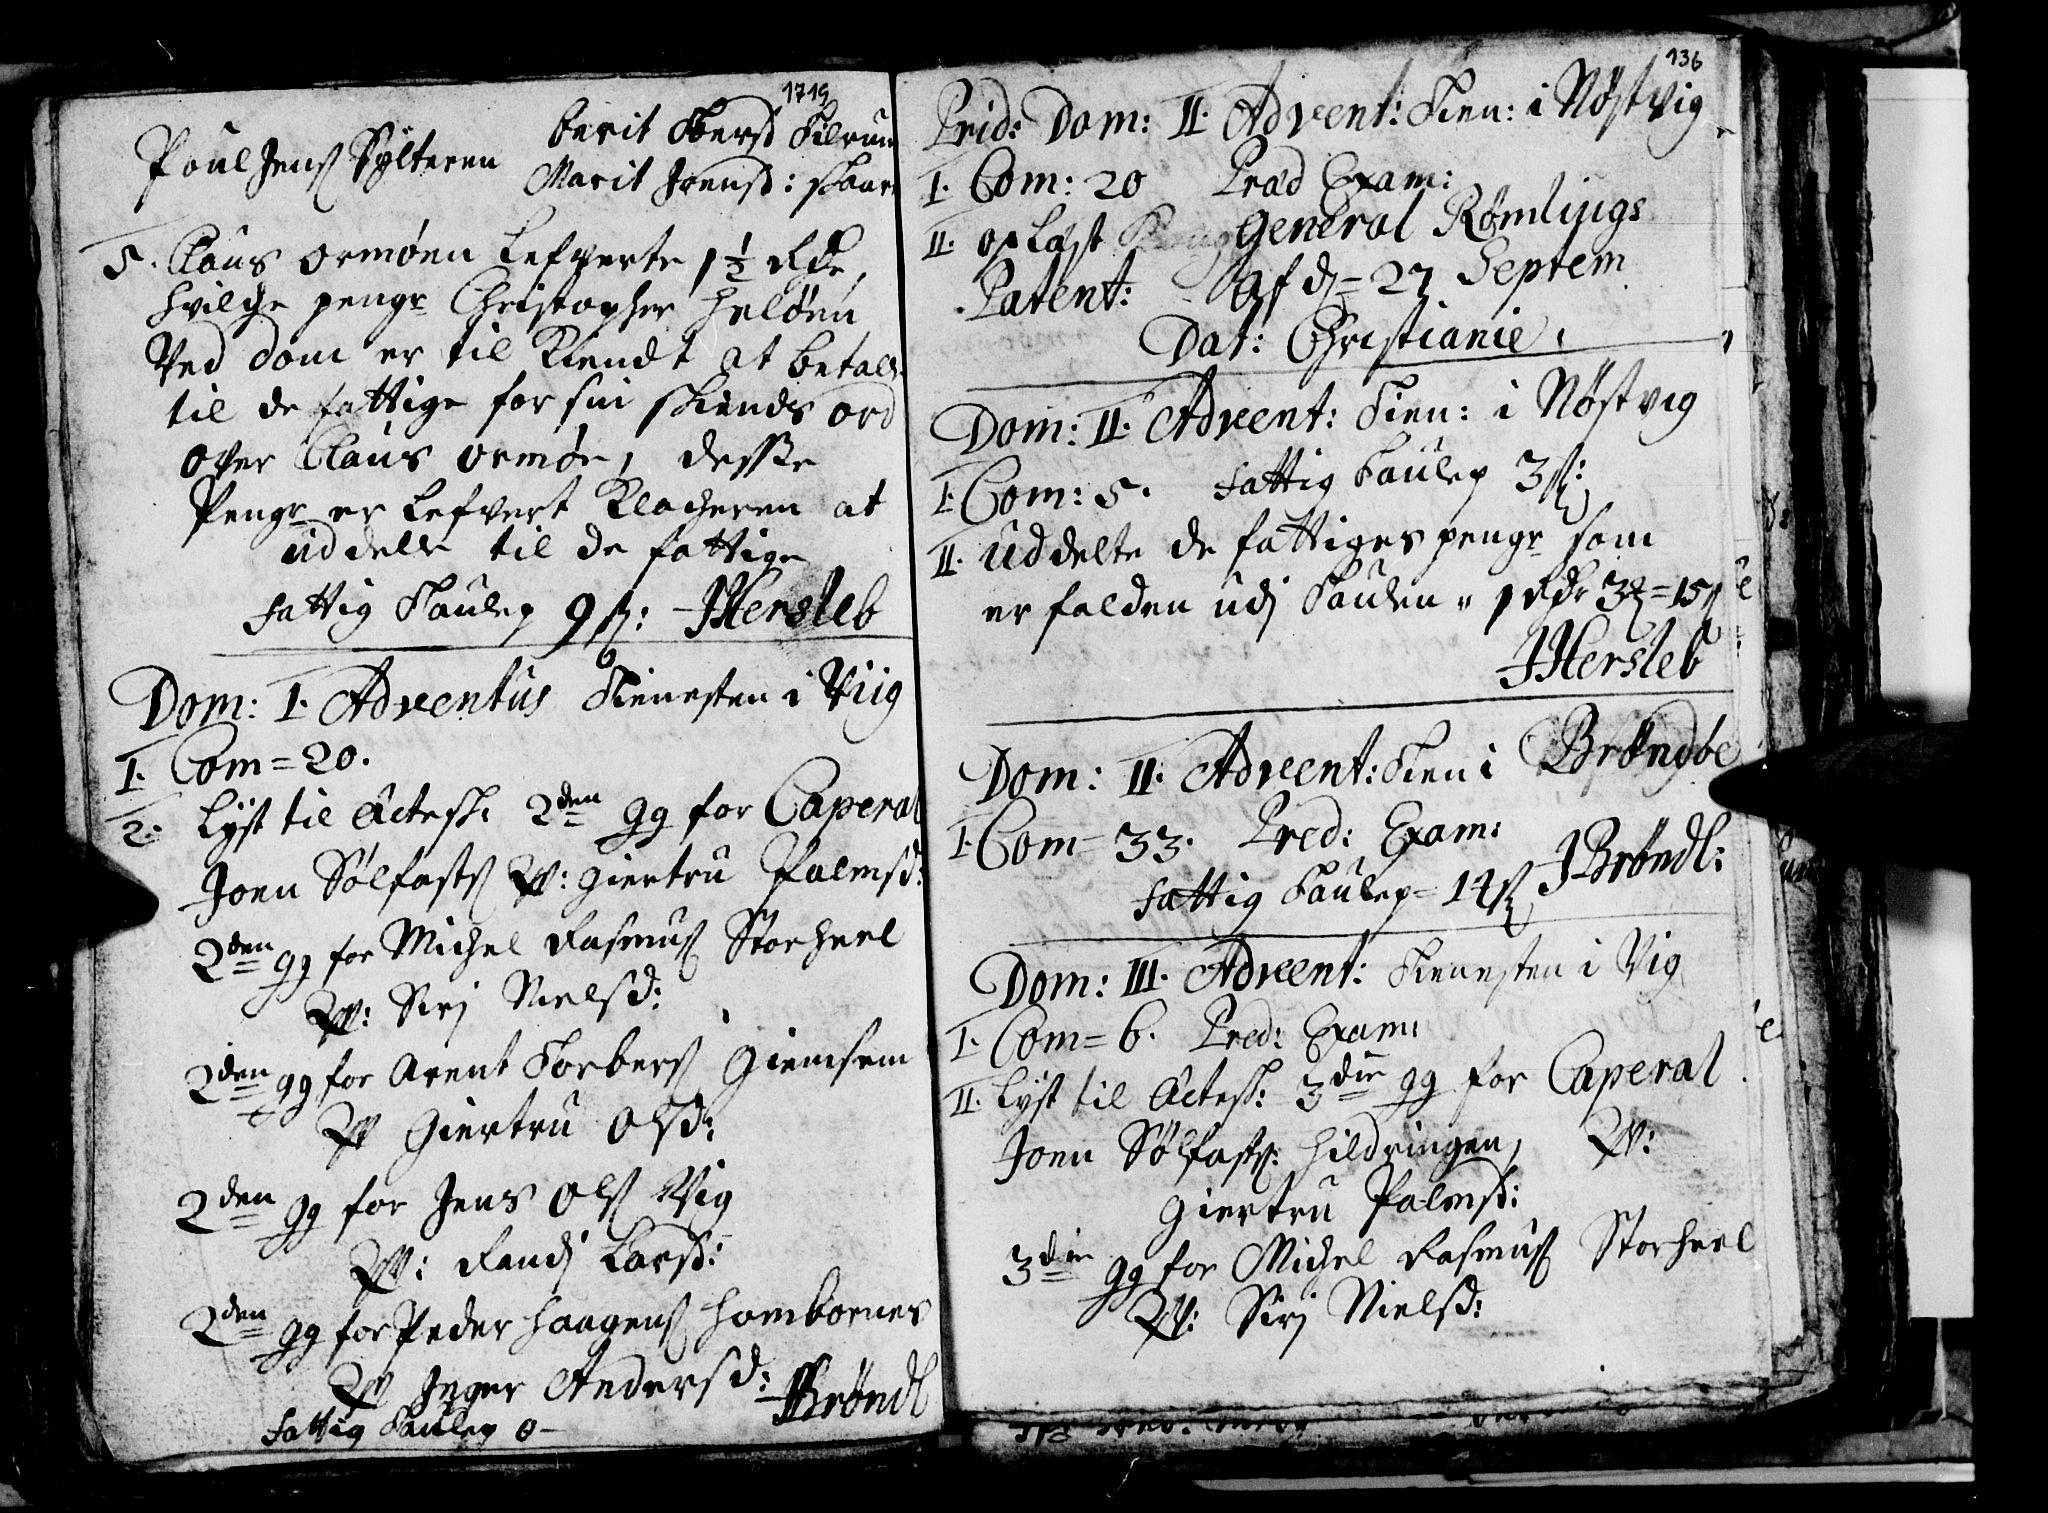 1719
Poul Jens: Sylteren berit Ebersd
Marit Jvensd:
5. Claus ormöen Lefverte 1½ rdr,
hvilche penge Christopher Helöen
Ved dom er til Kiendt at betale
til de fattige for sin skiends ord
over Claus ormöe, desse
Penge er Lefvert Klocheren at
uddelle til de fattige
fattig Taulen 9 s: JHersleb
Dom: I. Adventus Tienesten i Viig
I. Com = 20.
2. Lyst til Ectesk: 2den gg for Caperal
Joen Sölfasts W: giertru Palmsd:
2den gg for Michel Rasmus: Storheel
W: Sirj Nielsd:
2den gg for Arent Torbers: Giemsem
W giertru Olsd:
2den gg for Jens Ols: Vig
W: Randj Larsd:
2den gg for Peder Haagens: Hombornes
W Inger Andersd: JBröndl
fattig Taulen 0 -
136
Prid: Dom: II. Advent: Tien: i Nöstvig
I. Com: 20 Præd Exam:
II. oplæst General Römlings
Patent: Af d = 27 Septem
Dat: Christianie.
Dom: II. Advent: Tien: i Nöstvig
I. Com: 5. fattig Taulen 3 s:
II. Uddelte de fattiges penge som
er falden udj Taulen " 1 rdr 3 = 15 s
JHersleb
Dom: II. Advent: Tien i Bröndöe
I. Com = 33. Pred: Exam:
fattig Taulen = 14 s JBröndl:
Dom: III. Advent: Tienesten i Vig
I. Com = 6. Pred: Exam:
II. Lyst til Ectesk: 3die gg for Caperal
Joen Sölfasts: Hildringen, W:
giertru Palmsd:
3die gg for Michel Rasmus: Storheel
W: Sirj Nielsd: